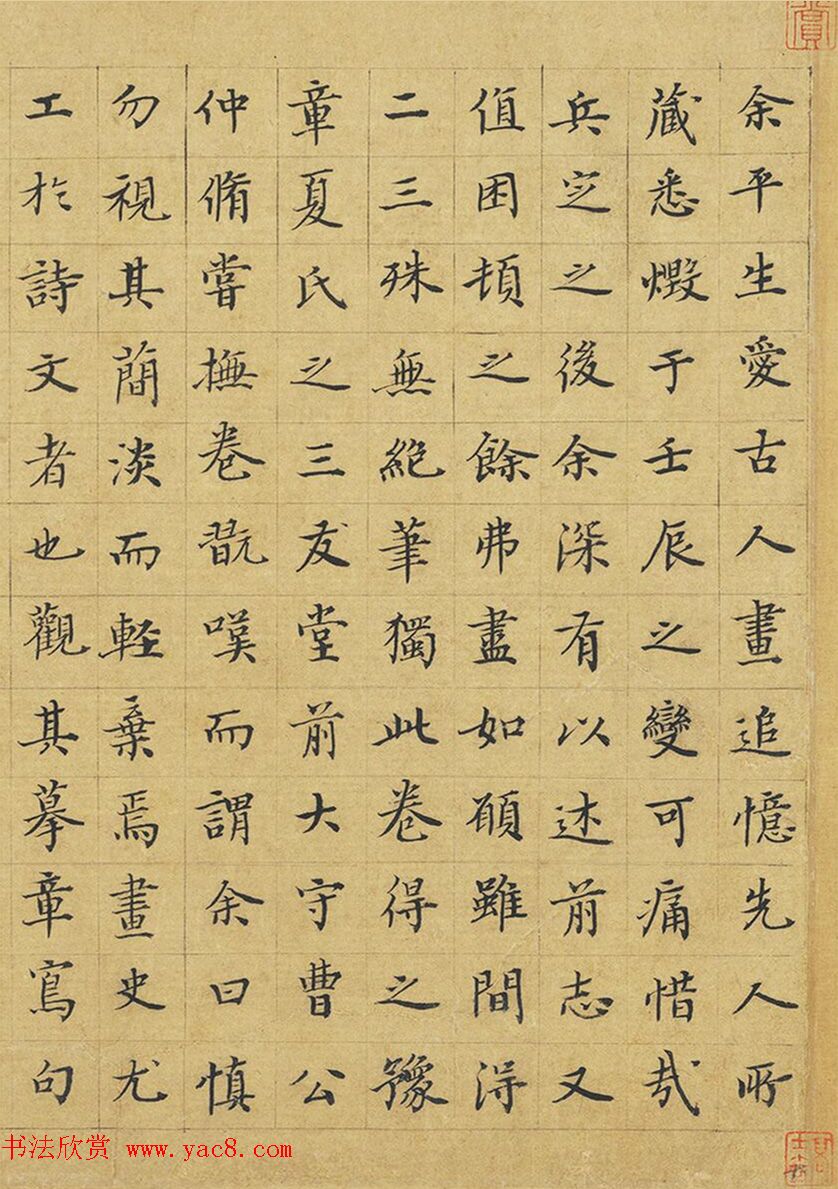 余平生愛古人畫追憶先人所
藏悉燬于壬辰之變可痛惜哉
兵定之後余深有以述前志又
值困頓之餘弗盡如願雖間得
二三殊無絕筆獨此卷得之豫
章夏氏之三友堂前大守曹公
仲脩嘗撫卷翫嘆而謂余曰慎
勿視其蕳淡而輕棄焉畫史尤
工於詩文者也觀其摹章寫句
书法欣赏 www.yac8.com